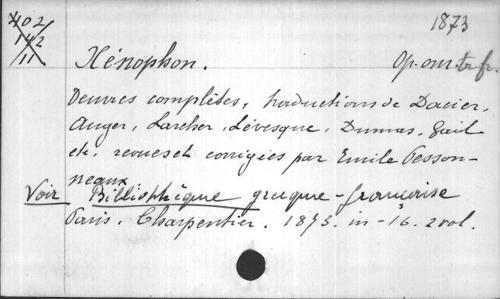 402
142
11
1873
Xénophon.
Op. om. tr. fr.
Oeuvres complètes, traductions de Dacier,
Auger, Larcher, Lévesque, Dumas, Gail
etc. revues et corrigées par Emile Pesson-
neaux
Voir Bibliothèque grecque-française
Paris. Charpentier. 1873. in-16. 2 vol.